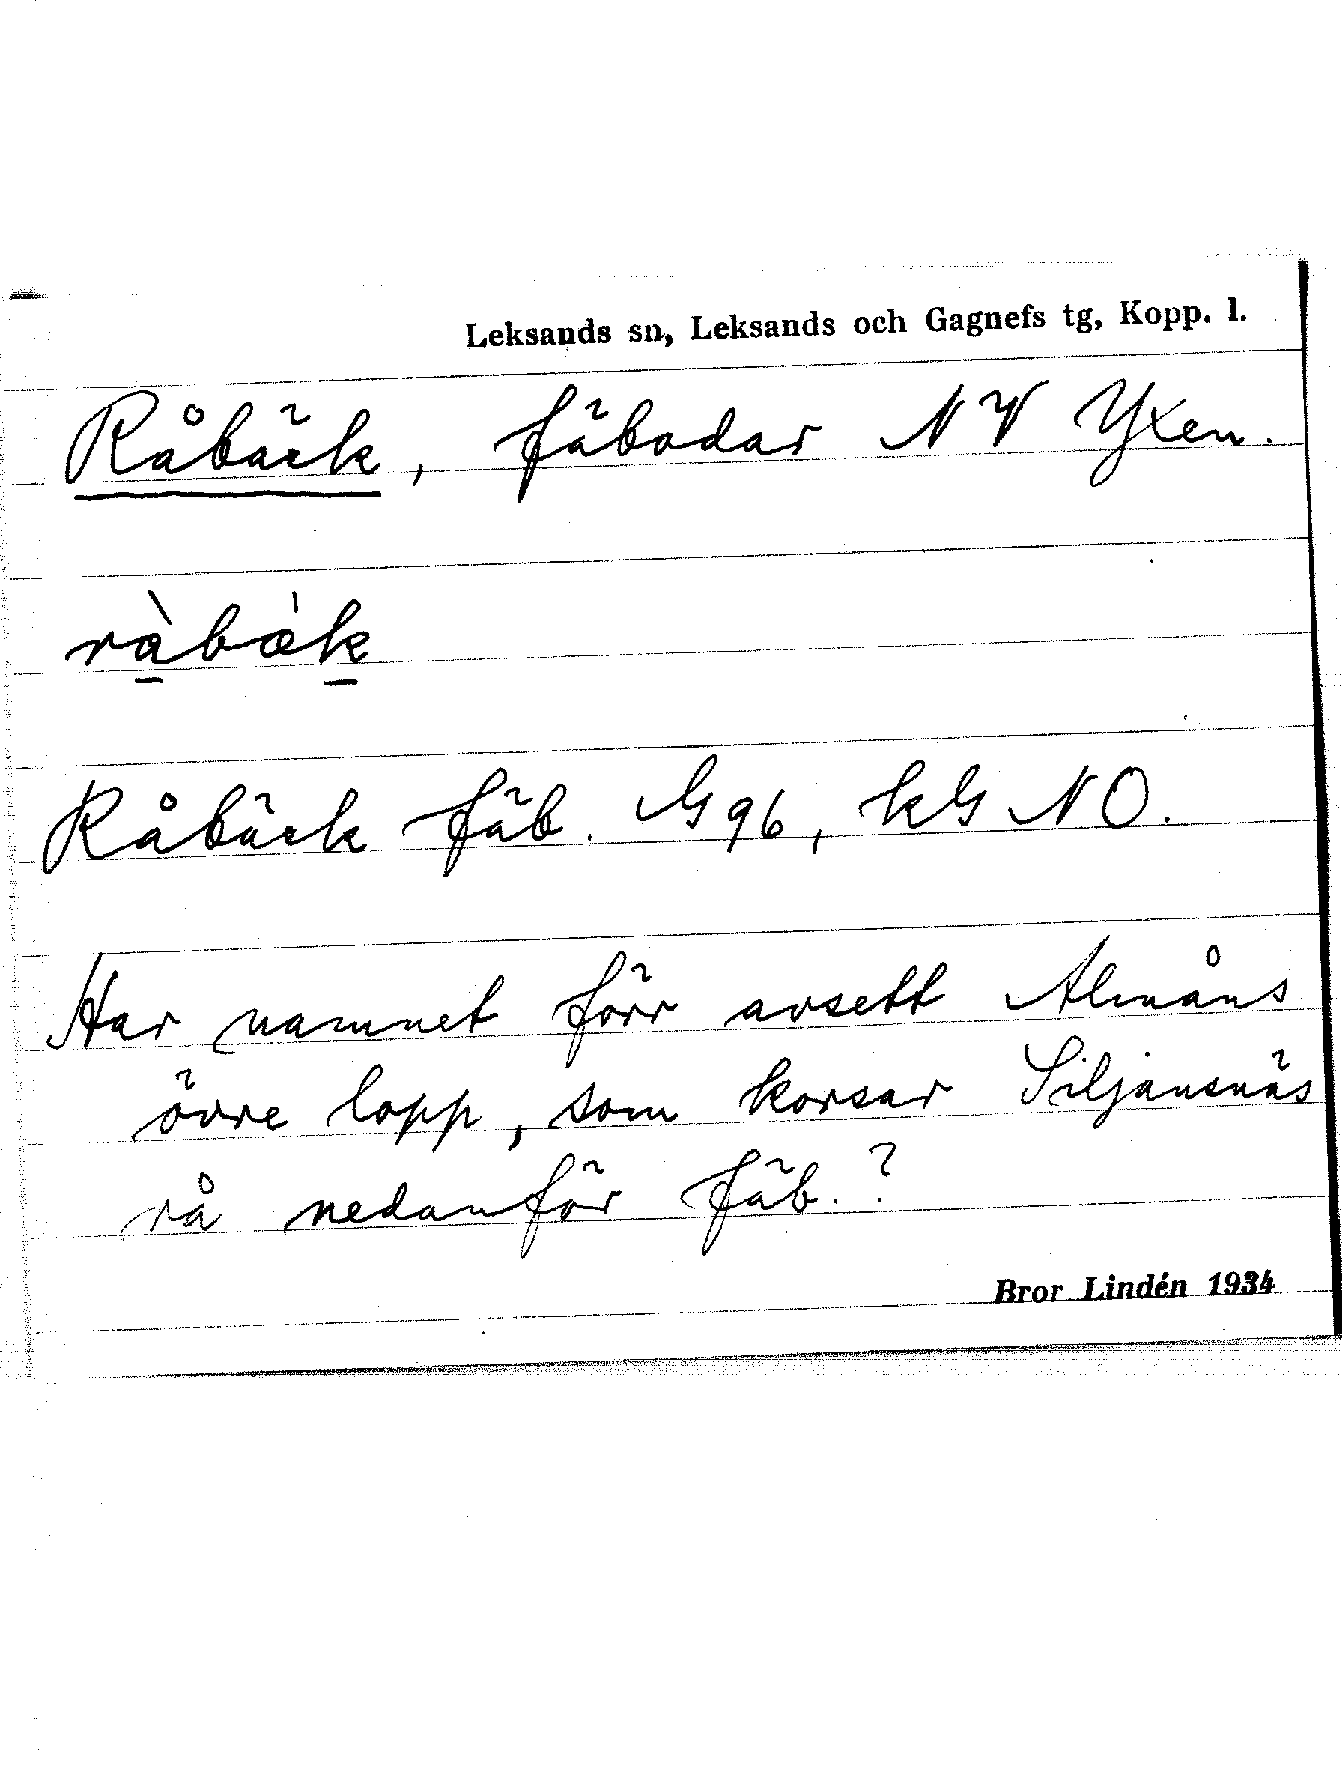 Leksands sn, Leksands och Gagnefs tg, Kopp. l.
Råbäck, fäbodar NV Yxen.
ràbæ̀k
Råbäck fäb. G96, kG NO.
Har namnet förr avsett Almåns
övre lopp, som korsar Siljansnäs
rå nedanför fäb.?
Bror Lindén 1934